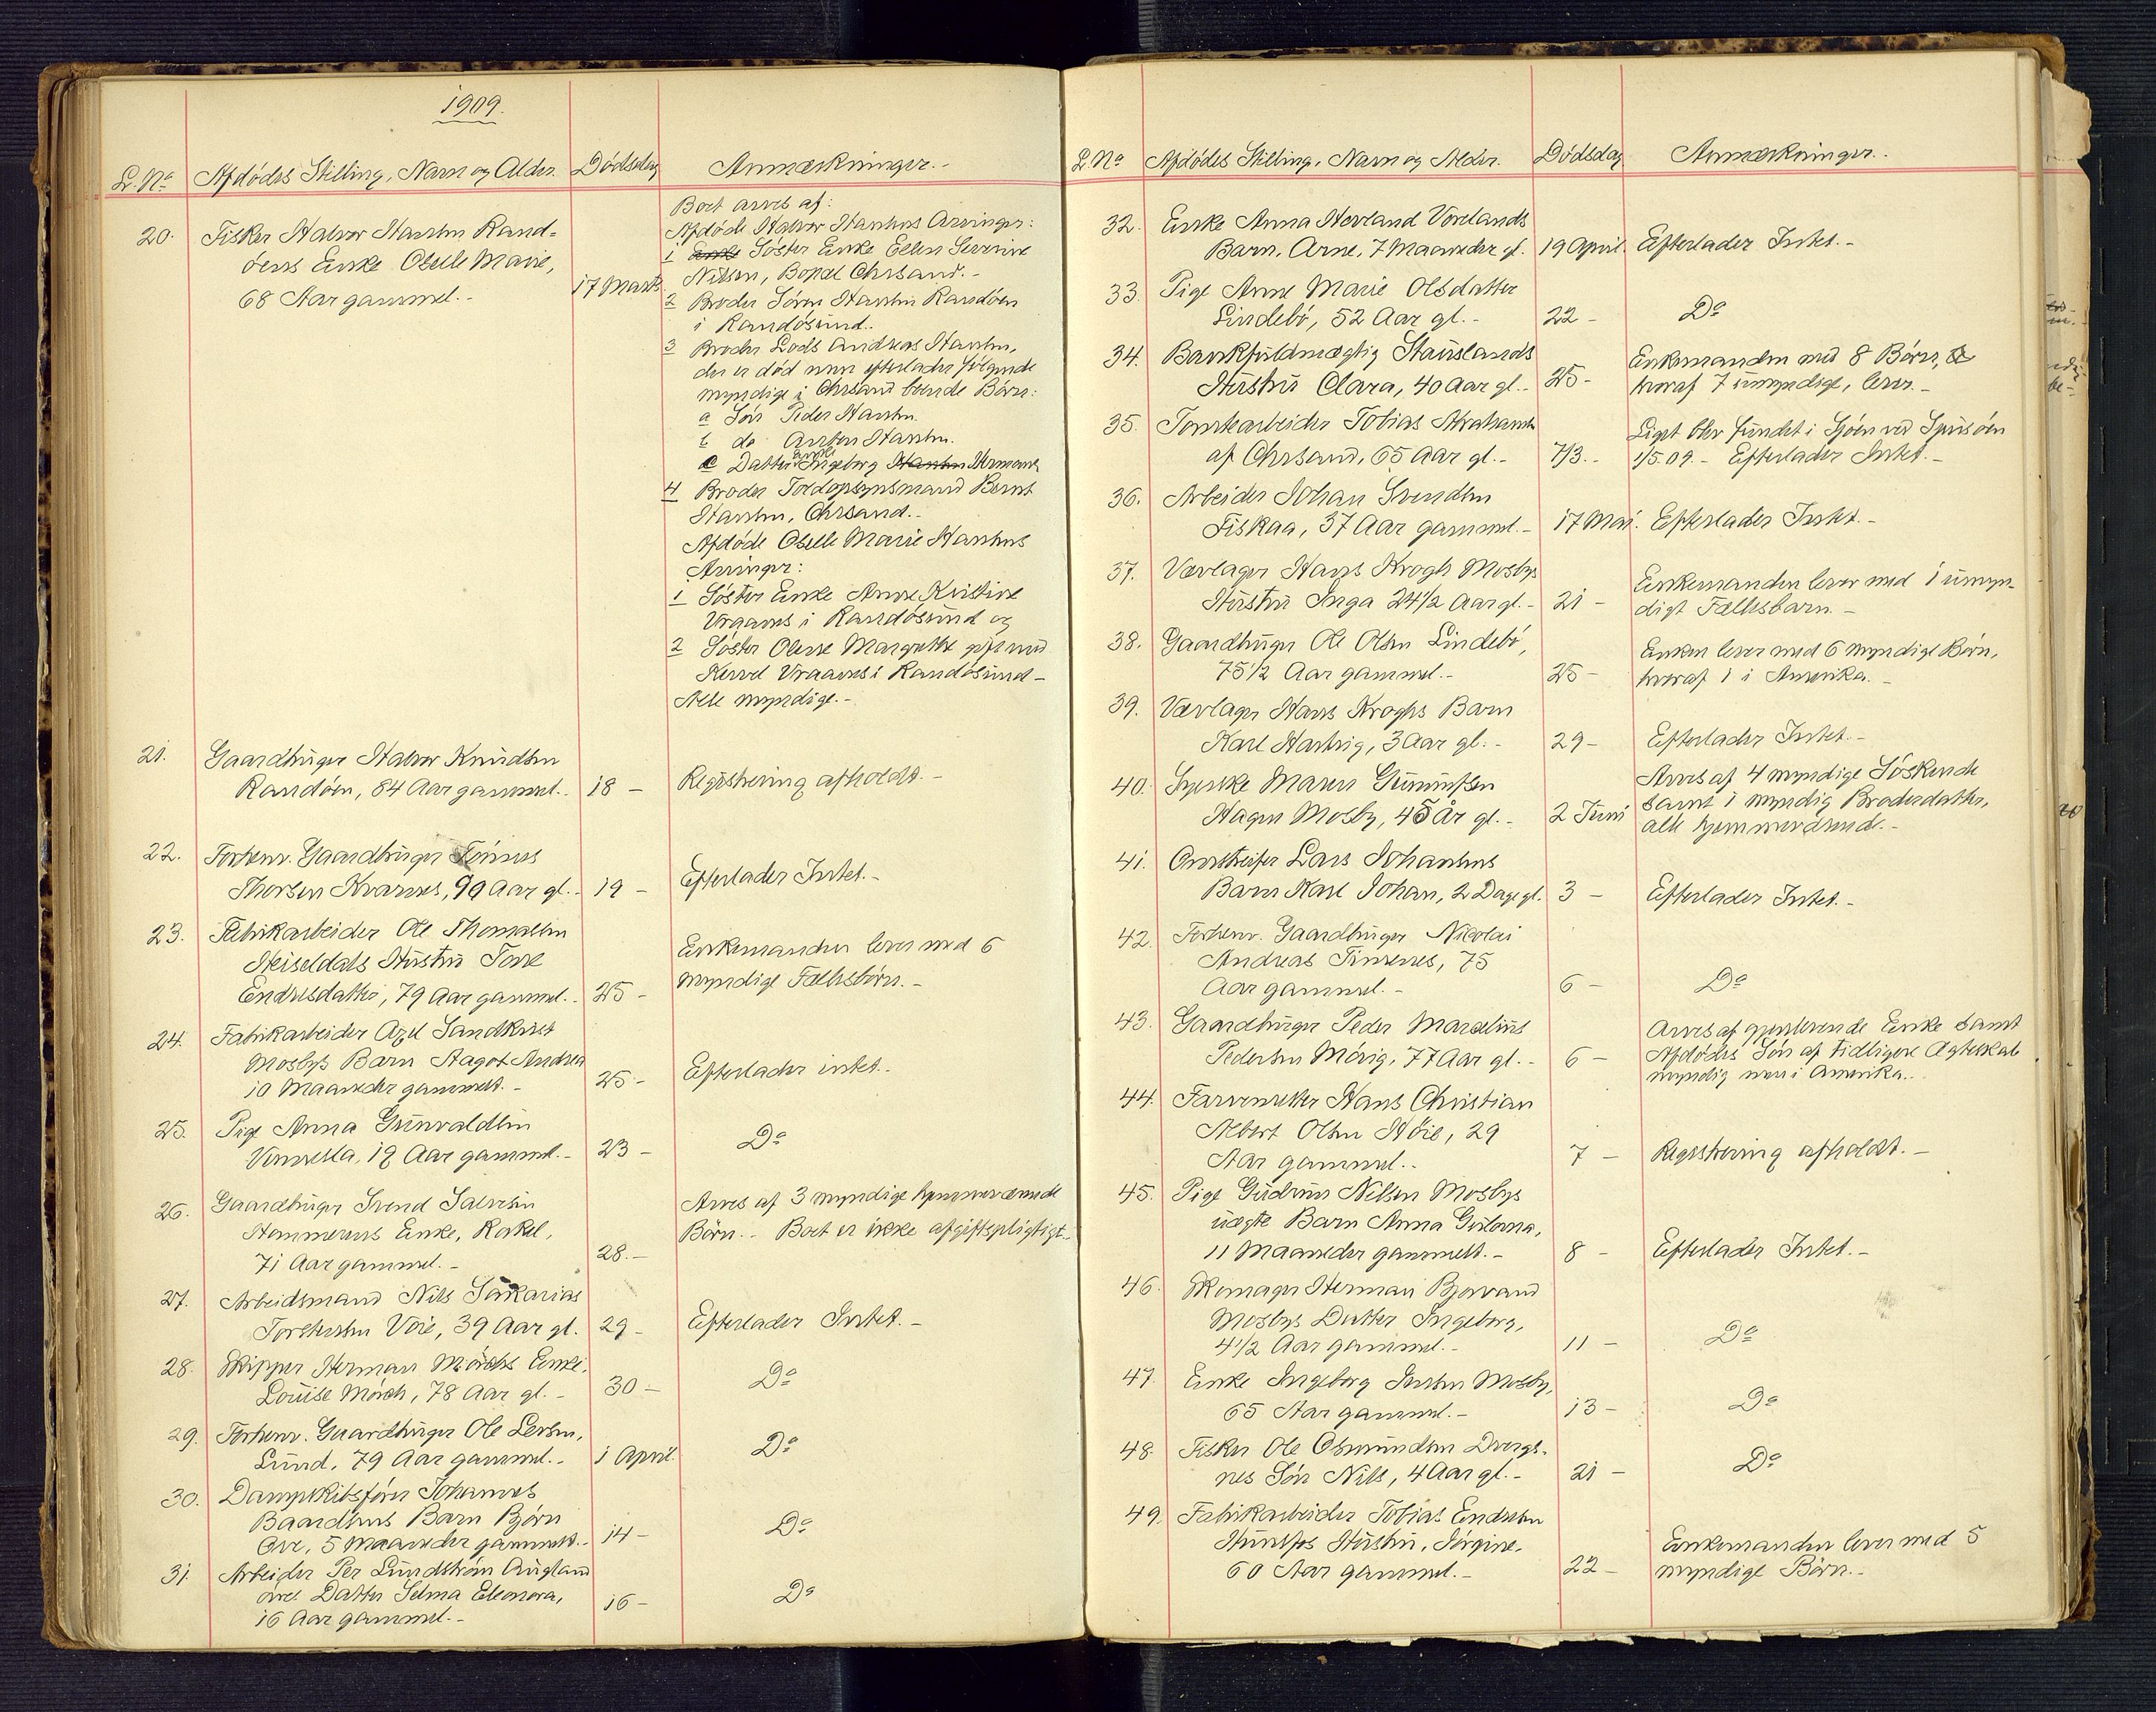 1909.
L. No Afdødes Stilling, Navn og Alder. Dødsdag Anmærkninger.-
20. Fisker Halvor Hansen Rand-
øens Enke Oselle Marie,
68 Aar gammel.- 17 Marts
Boet arves af:
Afdøde Halvor Hansens Arvinger:
1 Enke Søster Enke Ellen Severine
Nilsen, Bopæl Chrsand.-
2 Broder Søren Hansen Randøen
i Randøsund.
3 Broder Lods Andreas Hansen,
der er død men efterlader følgende
myndige i Chrsand boende Børn:
a Søn Peder Hansen.
b do Hansen.
c Datter Ingeborg Hansen Hermansen
4 Broder Toldopsynsmand Bernt
Hansen, Chrsand.-
Afdøde Oselle Marie Hansens
Arvinger:
1 Søster Enke Anne Kristine
Vraanes i Randøsund og
2 Søster Olene Margrethe gift med
Vraanes i Randøsund -
Alle myndige.-
21. Gaardbruger Halvor Knudsen
Randøen, 84 Aar gammel.- 18 - Registrering afholdt.-
22. Forhenv. Gaardbruger
Thorsen Kvarnes, 99 Aar gl.- 19 - Efterlader Intet.-
23. Fabrikarbeider Ole Thomassen
Heiseldals Hustru Tone
Endresdatter, 79 Aar gammel.- 25 -
Enkemanden lever med 6
myndige Fællesbørn.-
24. Fabrikarbeider Axel Sandkvist
Mosbys Barn Aagot Andrea
10 Maaneder gammelt.- 25 - Efterlader intet.-
25. Pige Anna Grunvaldsen
Vennesla, 19 Aar gammel.- 23 - Do
26. Gaardbruger Svend Salvesen
Hommerens Enke, Rakel,
71 Aar gammel.- 28.-
Arves af 3 myndige hjemmeværende
Børn.- Boet er ikke afgiftspligtigt.-
27. Arbeidsmand Nils Sakarias
Torstensen Voie, 39 Aar gl. 29 - Efterlader Intet.-
28. Skipper Herman Mørchs Enke,
Louise Mørch, 78 Aar gl.- 30 - Do
29. Forhenv. Gaardbruger Ole Larsen,
Lund, 79 Aar gammel.- 1 April. Do
30. Dampskibsfører Johannes
Baardsens Barn Bjørn
Ove, 5 Maaneder gammelt.- 14 - Do
31. Arbeider Per Lundstrøm Augland
Datter Selma Eleonora,
16 Aar gammel.- 16 - Do
L. No Afdødes Stilling, Navn og Alder. Dødsdag Anmærkninger.-
32. Enke Anna Hovland Vorelands
Barn, Arne, 7 Maaneder gl. 19 April. Efterlader Intet.-
33. Pige Anne Marie Olsdatter
Lindebø, 52 Aar gl.- 22 - Do
34. Bankfuldmægtig Stauslands
Hustru Clara, 40 Aar gl.- 25 -
Enkemanden med 8 Børn,
hvoraf 7 umyndige, lever.-
35. Tomtearbeider Tobias Abrahamsen
af Chrsand, 65 Aar gl.- 7/3.-
Liget blev fundet i Sjøen ved
1/5.09.- Efterlader Intet.-
36. Arbeider Johan Svendsen
Fiskaa, 37 Aar gammel.- 17 Mai. Efterlader Intet.-
37. Vævlager Hans Krogh Mosbys
Hustru Inga 24 1/2 Aar gl.- 21 -
Enkemanden lever med 1 umyn-
digt Fællesbarn.-
38. Gaardbruger Ole Olsen Lindebø,
75 1/2 Aar gammel.- 25 -
Enken lever med 6 myndige Børn,
hvoraf 1 i Amerika.-
39. Vævlager Hans Kroghs Barn
Karl Hartvig, 3 Aar gl.- 29 - Efterlader Intet.-
40. Syerske Maren Gunnufsen
Hagen Mosby, 45 År gl.- 2 Juni
Arves af 4 myndige Søskende
samt 1 myndig Broderdatter,
alle hjemmeværende.-
41. Lars Johansens
Barn Karl Johan, 2 Dage gl. 3 - Efterlader Intet.-
42. Forhenv. Gaardbruger Nicolai
Andreas Timenes, 75
Aar gammel.- 6 - Do
43. Gaardbruger Peder Marcelius
Pedersen Mørig, 77 Aar gl.- 6 -
Arves af gjenlevende Enke samt
Afdødes Søn af tidligere Ægteskab
myndig men i Amerika.-
44. Farvemester Hans Christian
Albert Olsen Høie, 29
Aar gammel.- 7 - Registrering afholdt.-
45. Pige Gudrun Nilsen Mosbys
uægte Barn Anna
11 Maaneder gammelt.- 8 - Efterlader Intet.-
46. Skomager Herman Bjorvand
Mosbys Datter Ingeborg,
4 1/2 Aar gammel.- 11 - Do
47. Enke Ingeborg Jensen Mosby,
65 Aar gammel.- 13 - Do
48. Fisker Ole Osmundsen Dvergs-
nes Søn Nils, 4 Aar gl.- 21 - Do
49. Fabrikarbeider Tobias Endresen
Hunsfos Hustru, Jørgine,
60 Aar gammel.- 22 -
Enkemanden lever med 5
myndige Børn.-